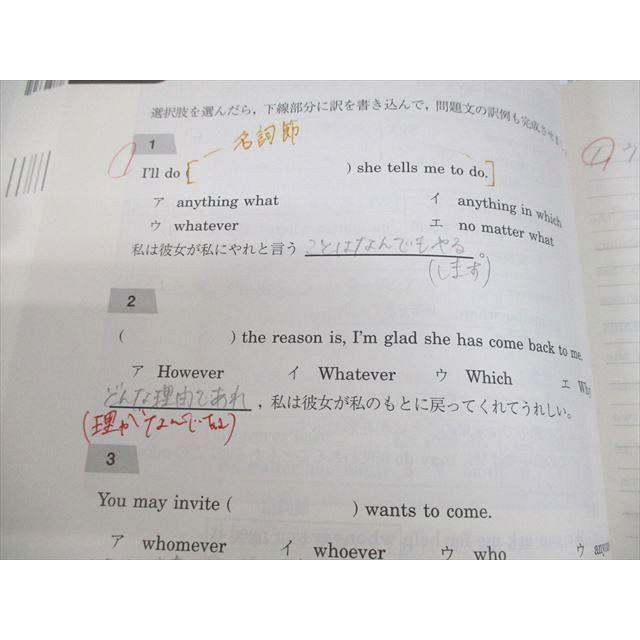 選択肢を選んだら，下線部分に訳を書き込んで，問題文の訳例も完成させ
1
名詞節
① ウ
I'll do [( ) she tells me to do.]
ア anything what
イ anything in which
ウ whatever
エ no matter what
私は彼女が私にやれと言う ことはなんでもやる 。
(します)
2
( ) the reason is, I'm glad she has come back to me.
ア However イ Whatever ウ Which エ Why
どんな理由であれ ，私は彼女が私のもとに戻ってくれてうれしい。
(理由がなんであれ)
3
You may invite ( ) wants to come.
ア whomever イ whoever ウ who